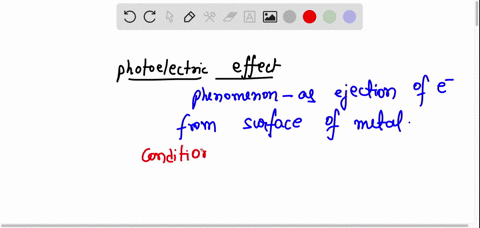 photoelectric effect
phenomenon - as ejection of e⁻
from surface of metal.
Condition